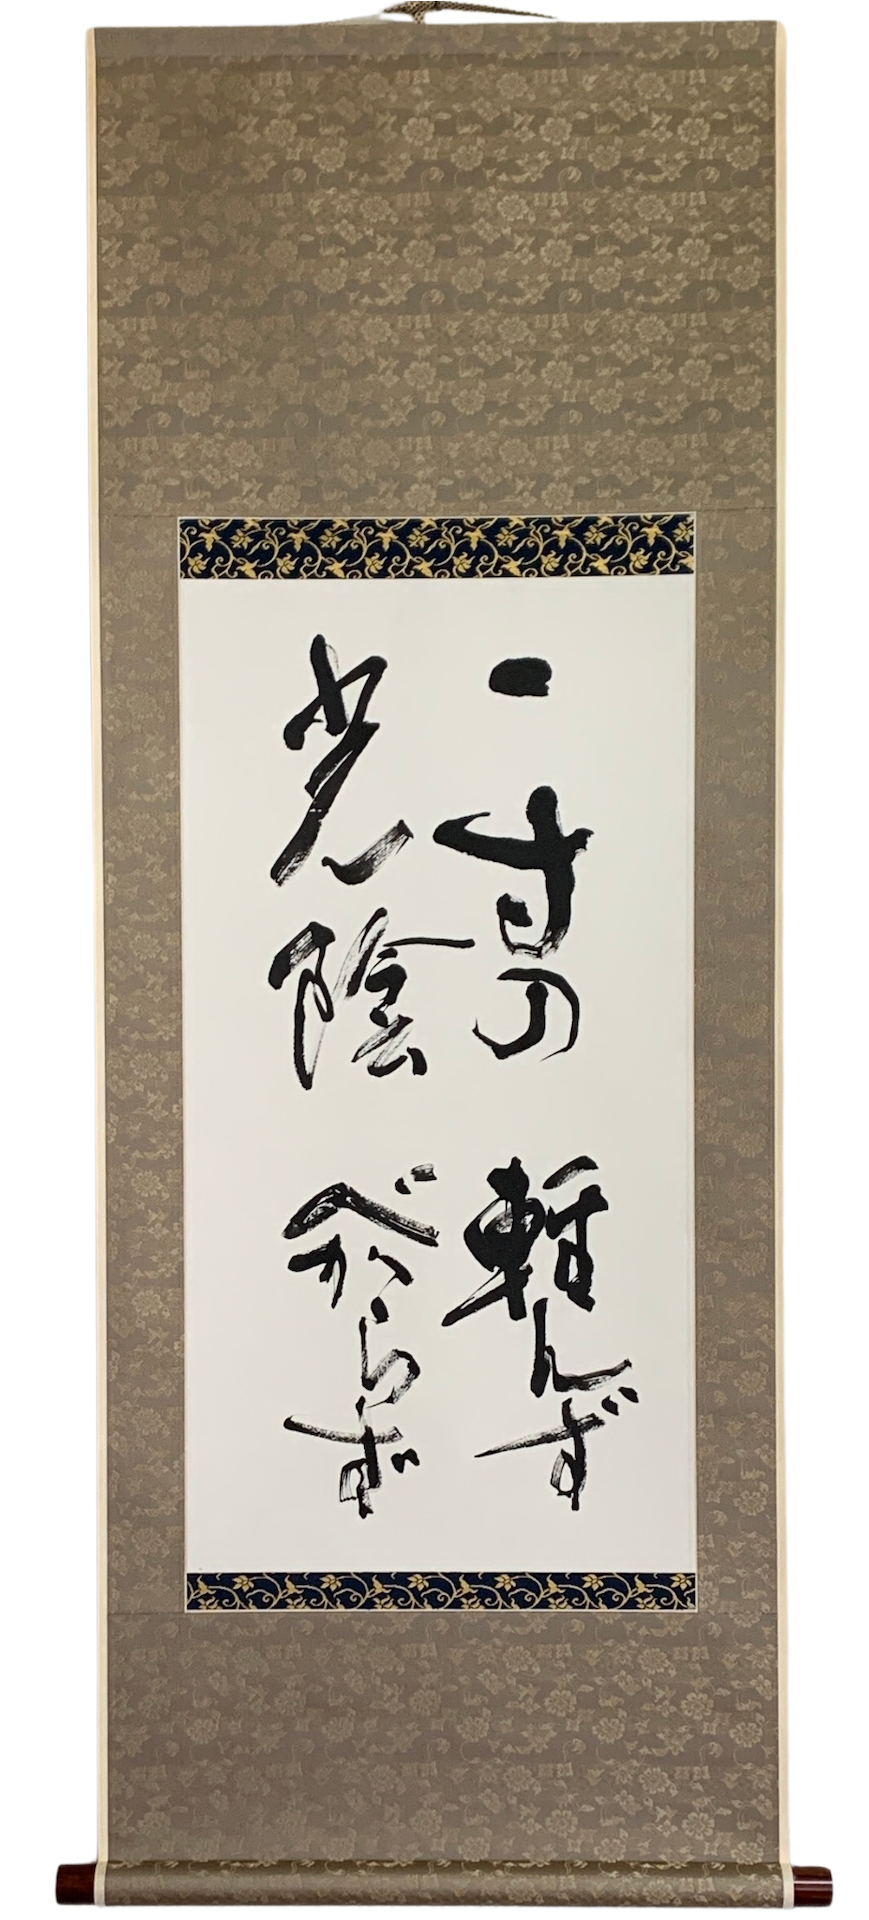 一寸の軽んず
光陰べからず